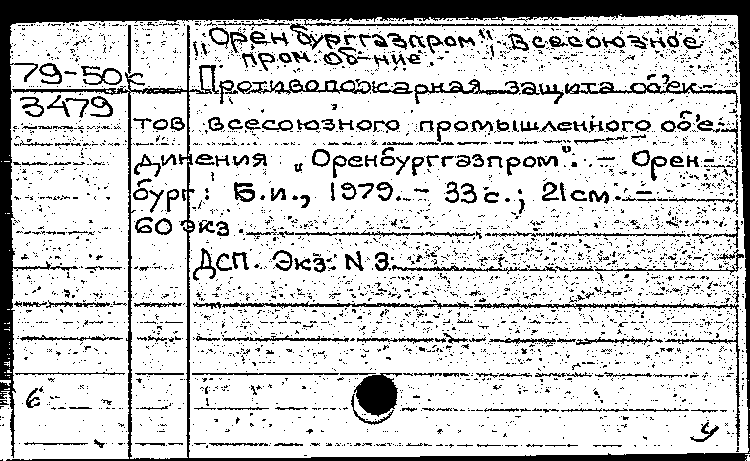 „Оренбурггазпром", Всесоюзное
пром. об-ние.
79-50с Противопожарная защита объек-
3479
тов всесоюзного промышленного объе-
динения „Оренбурггазпром". — Орен-
бург: Б.и., 1979. — 33 с.; 21 см. —
60 экз.
ДСП. Экз. N 3.
6
У